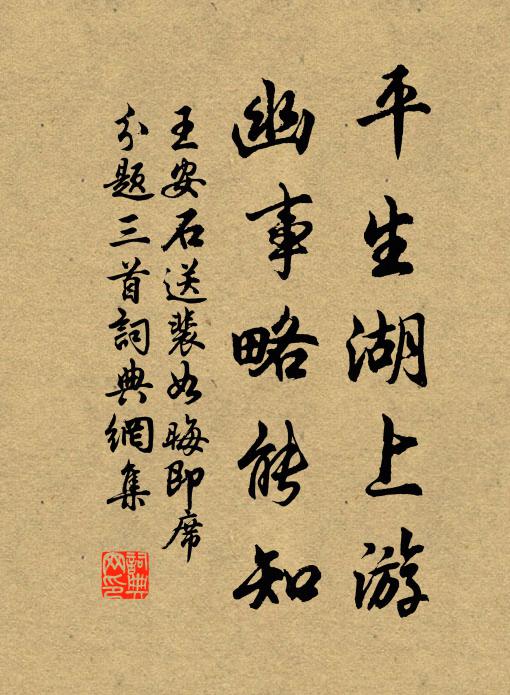 平生湖上游
幽事略能知
王安石送裴如晦即席
分题三首詞典網集
詞典
网印